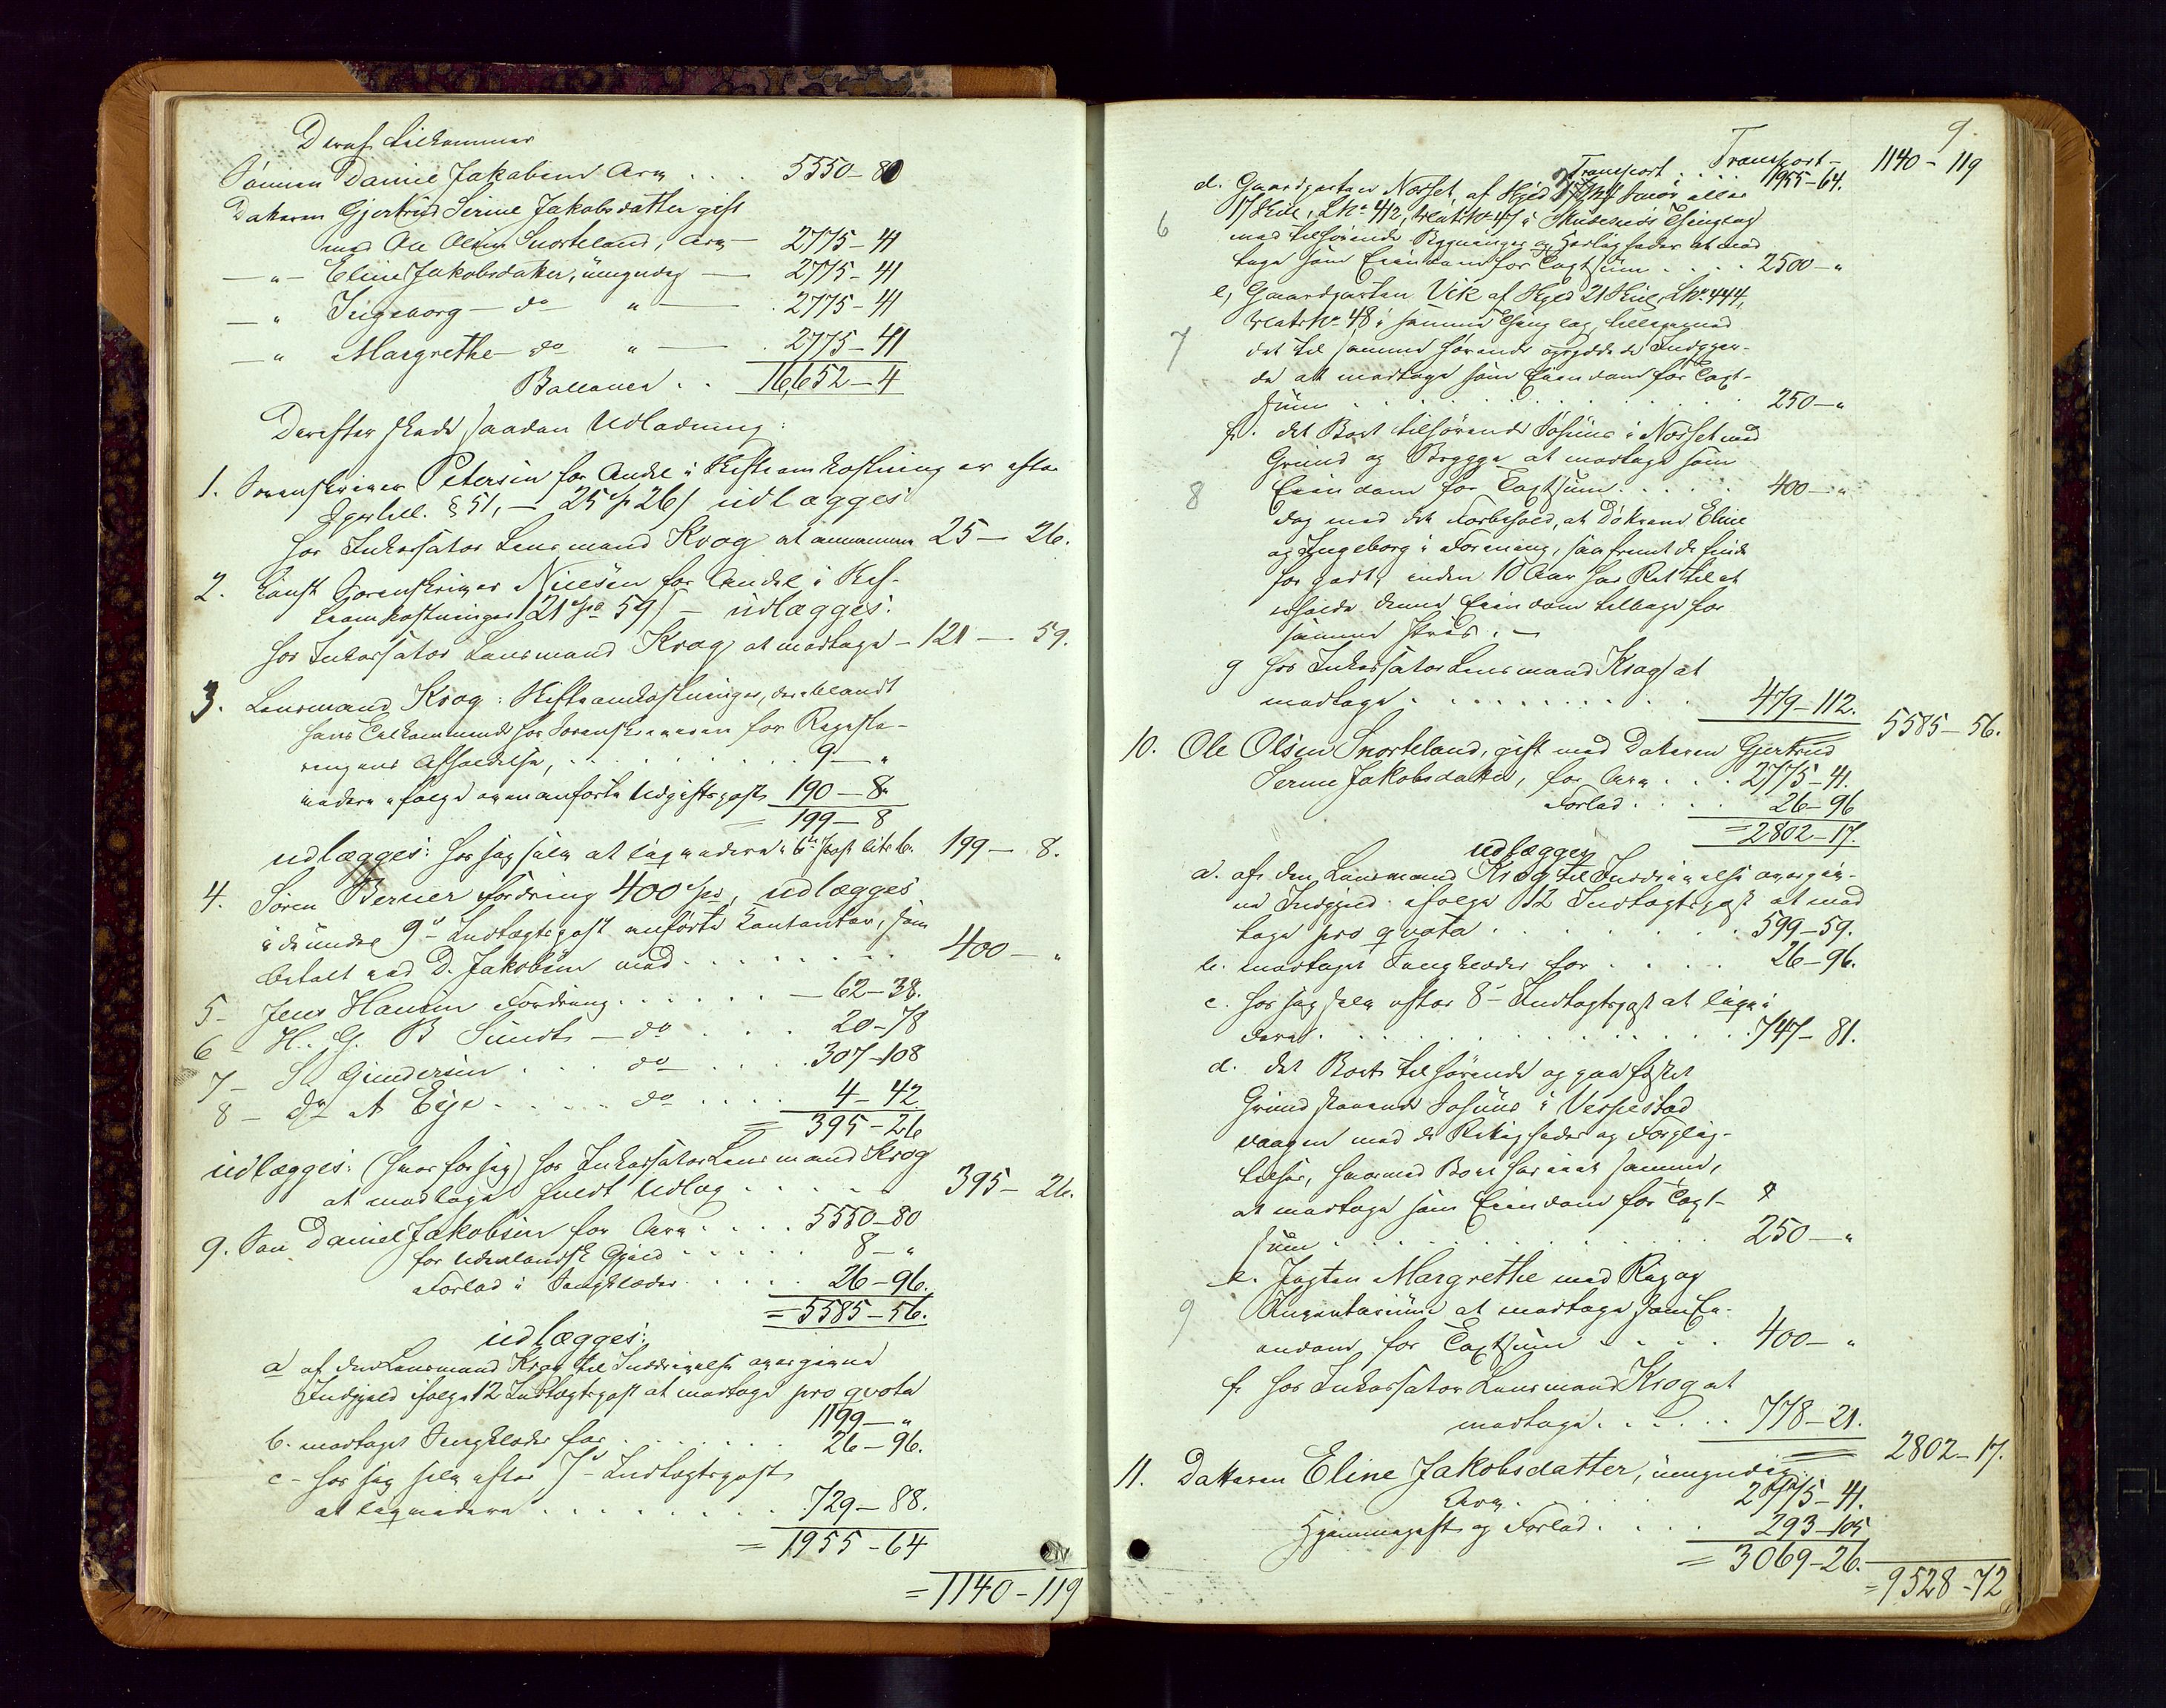 Deraf tilkommer
Sønnen Daniel Jakobsen Arv . . . 5550 – 80
Datteren Gjertrud Serine Jakobsdatter gift
med Ole Olsen Snorteland, Arv – 2775 – 41
– " – Eline Jakobsdatter, umyndig – 2775 – 41
– " Ingeborg – do " – . 2775 – 41
– " Margrethe – do " – . 2775 – 41
Ballance . . 16,652 – 4
Derefter skede saadan Udlodning:
1. Sorenskriver Petersen for Andel i Skifteomkostninger efter
§ 51, – 25 26 / udlægges
hos Inkassator Lensmand Krog at annamme 25 – 26.
2. Const. Sorenskriver Nielsen for Andel i Skif-
teomkostninger 121 Spd 59 / – udlægges:
hos Inkassator Lensmand Krog at modtage – 121 – 59.
3. Lensmand Krog: Skifteomkostninger, deriblandt
hans Tilkommende hos Sorenskriveren for Registe-
ringens Afholdelse, . . . . . 9 – "
videre ifølge ovenanførte Udgiftspost 190 – 8
= 199 – 8
udlægges: hos sig selv at liqvidere i 6te Post litr b. 199 – 8.
4. Søren Berner Fordring 400 Spd, udlægges
i de under 9de Indtægtspost anførte Contanter, som
betalt ved D. Jakobsen med . . . . . . . 400 – "
5 – Jens Hansen Fordring . . . . . . – 62 – 38.
6 – H. G. B Sundt – do . . . . 20 – 78
7 – S. Gundersen . . . do . . . . 307 – 108
8 – A Eije . . . . . do . . . . 4 – 42
= 395 – 26
udlægges: (hver for sig) hos Inkassator Lensmand Krog
at modtage fuldt Udlæg . . . . . . 395 – 26.
9. Søn Daniel Jakobsen for Arv . . . . 5550 – 80
for udenlandsk Gjæld . . . . . 8 – "
Forlod i Sengklæder . . . . . 26 – 96.
= 5585 – 56.
udlægges:
a af den Lensmand Krog til Inddrivelse overgivne
Indgjeld ifølge 12 Indtægtspost at modtage pro qvota
1199 – "
b. modtaget Sengklæder for . . . . . . . 26 – 96.
c – hos sig selv efter 7de Indtægtspost
at liqvidere . . . . . . . . . 729 – 88.
= 1955 – 64
= 1140 – 119
9.
Transport – 1140 – 119
Transport . . . . 1955 – 64.
d. Gaardparten Norset, af Skyld
17 Skil, L No 412, Matr No 47 i Skudesnes Thinglag
6
med tilhørende Bygninger og Herligheder at mod-
tage som Eiendom for Taxtsum . . . . 2500 – "
e, Gaardparten Vik af Skyld 21 Skil, L No 444,
Matr No 48 i samme Thinglag tilligemed
7
det til samme hørende opryddede Indgjer-
de at modtage som Eiendom for Taxt-
sum . . . . . . . . . . . . . 250 – "
f. det Boet tilhørende Søhuus i Norset med
Grund og Brygge at modtage som
8
Eiendom for Taxtsum . . . . . 400 – "
dog med det Forbehold, at Døttrene Eline
og Ingeborg i Forening, saafremt de finde
for godt, inden 10 Aar har Ret til at
erholde denne Eiendom tilbage for
samme Priis. –
g hos Inkassator Lensmand Krog at
modtage . . . . . . . . . . 479 – 112.
5585 – 56.
10. Ole Olsen Snorteland, gift med Datteren Gjertrud
Serine Jakobsdatter, for Arv . . . 2775 – 41.
Forlod . . . . 26 – 96
= 2802 – 17.
udlægges
a. af den Lensmand Krog til Inddrivelse overgiv-
ne Indgjeld ifølge 12 Indtægtspost at mod
tage pro qvota . . . . . . . . . 599 – 59.
b. modtaget Sengklæder for . . . . . 26 – 96.
c. hos sig selv efter 8de Indtægtspost at liqvi
dere . . . . . . . . . . . . . . . 747 – 81.
d. det Boet tilhørende og paa fæstet
Grund staaende Søhuus i Vespestad
vaagen med de Rettigheder og Forplig-
telser, hvormed Boet har eiet samme,
at modtage som Eiendom for Taxt-
sum . . . . . . . . . . . . 250 – "
e. Jagten Margrethe med Rig og
9
Inventarium at modtage som Ei-
endom for Taxtsum . . . . . 400 – "
f. hos Inkassator Lensmand Krog at
modtage . . . . . . 778 – 21.
2802 – 17.
11. Datteren Eline Jakobsdatter, umyndig
Arv . . . . . 2775 – 41.
Hjemmegift og Forlod . . . . 293 – 105
= 3069 – 26.
= 9528 – 72